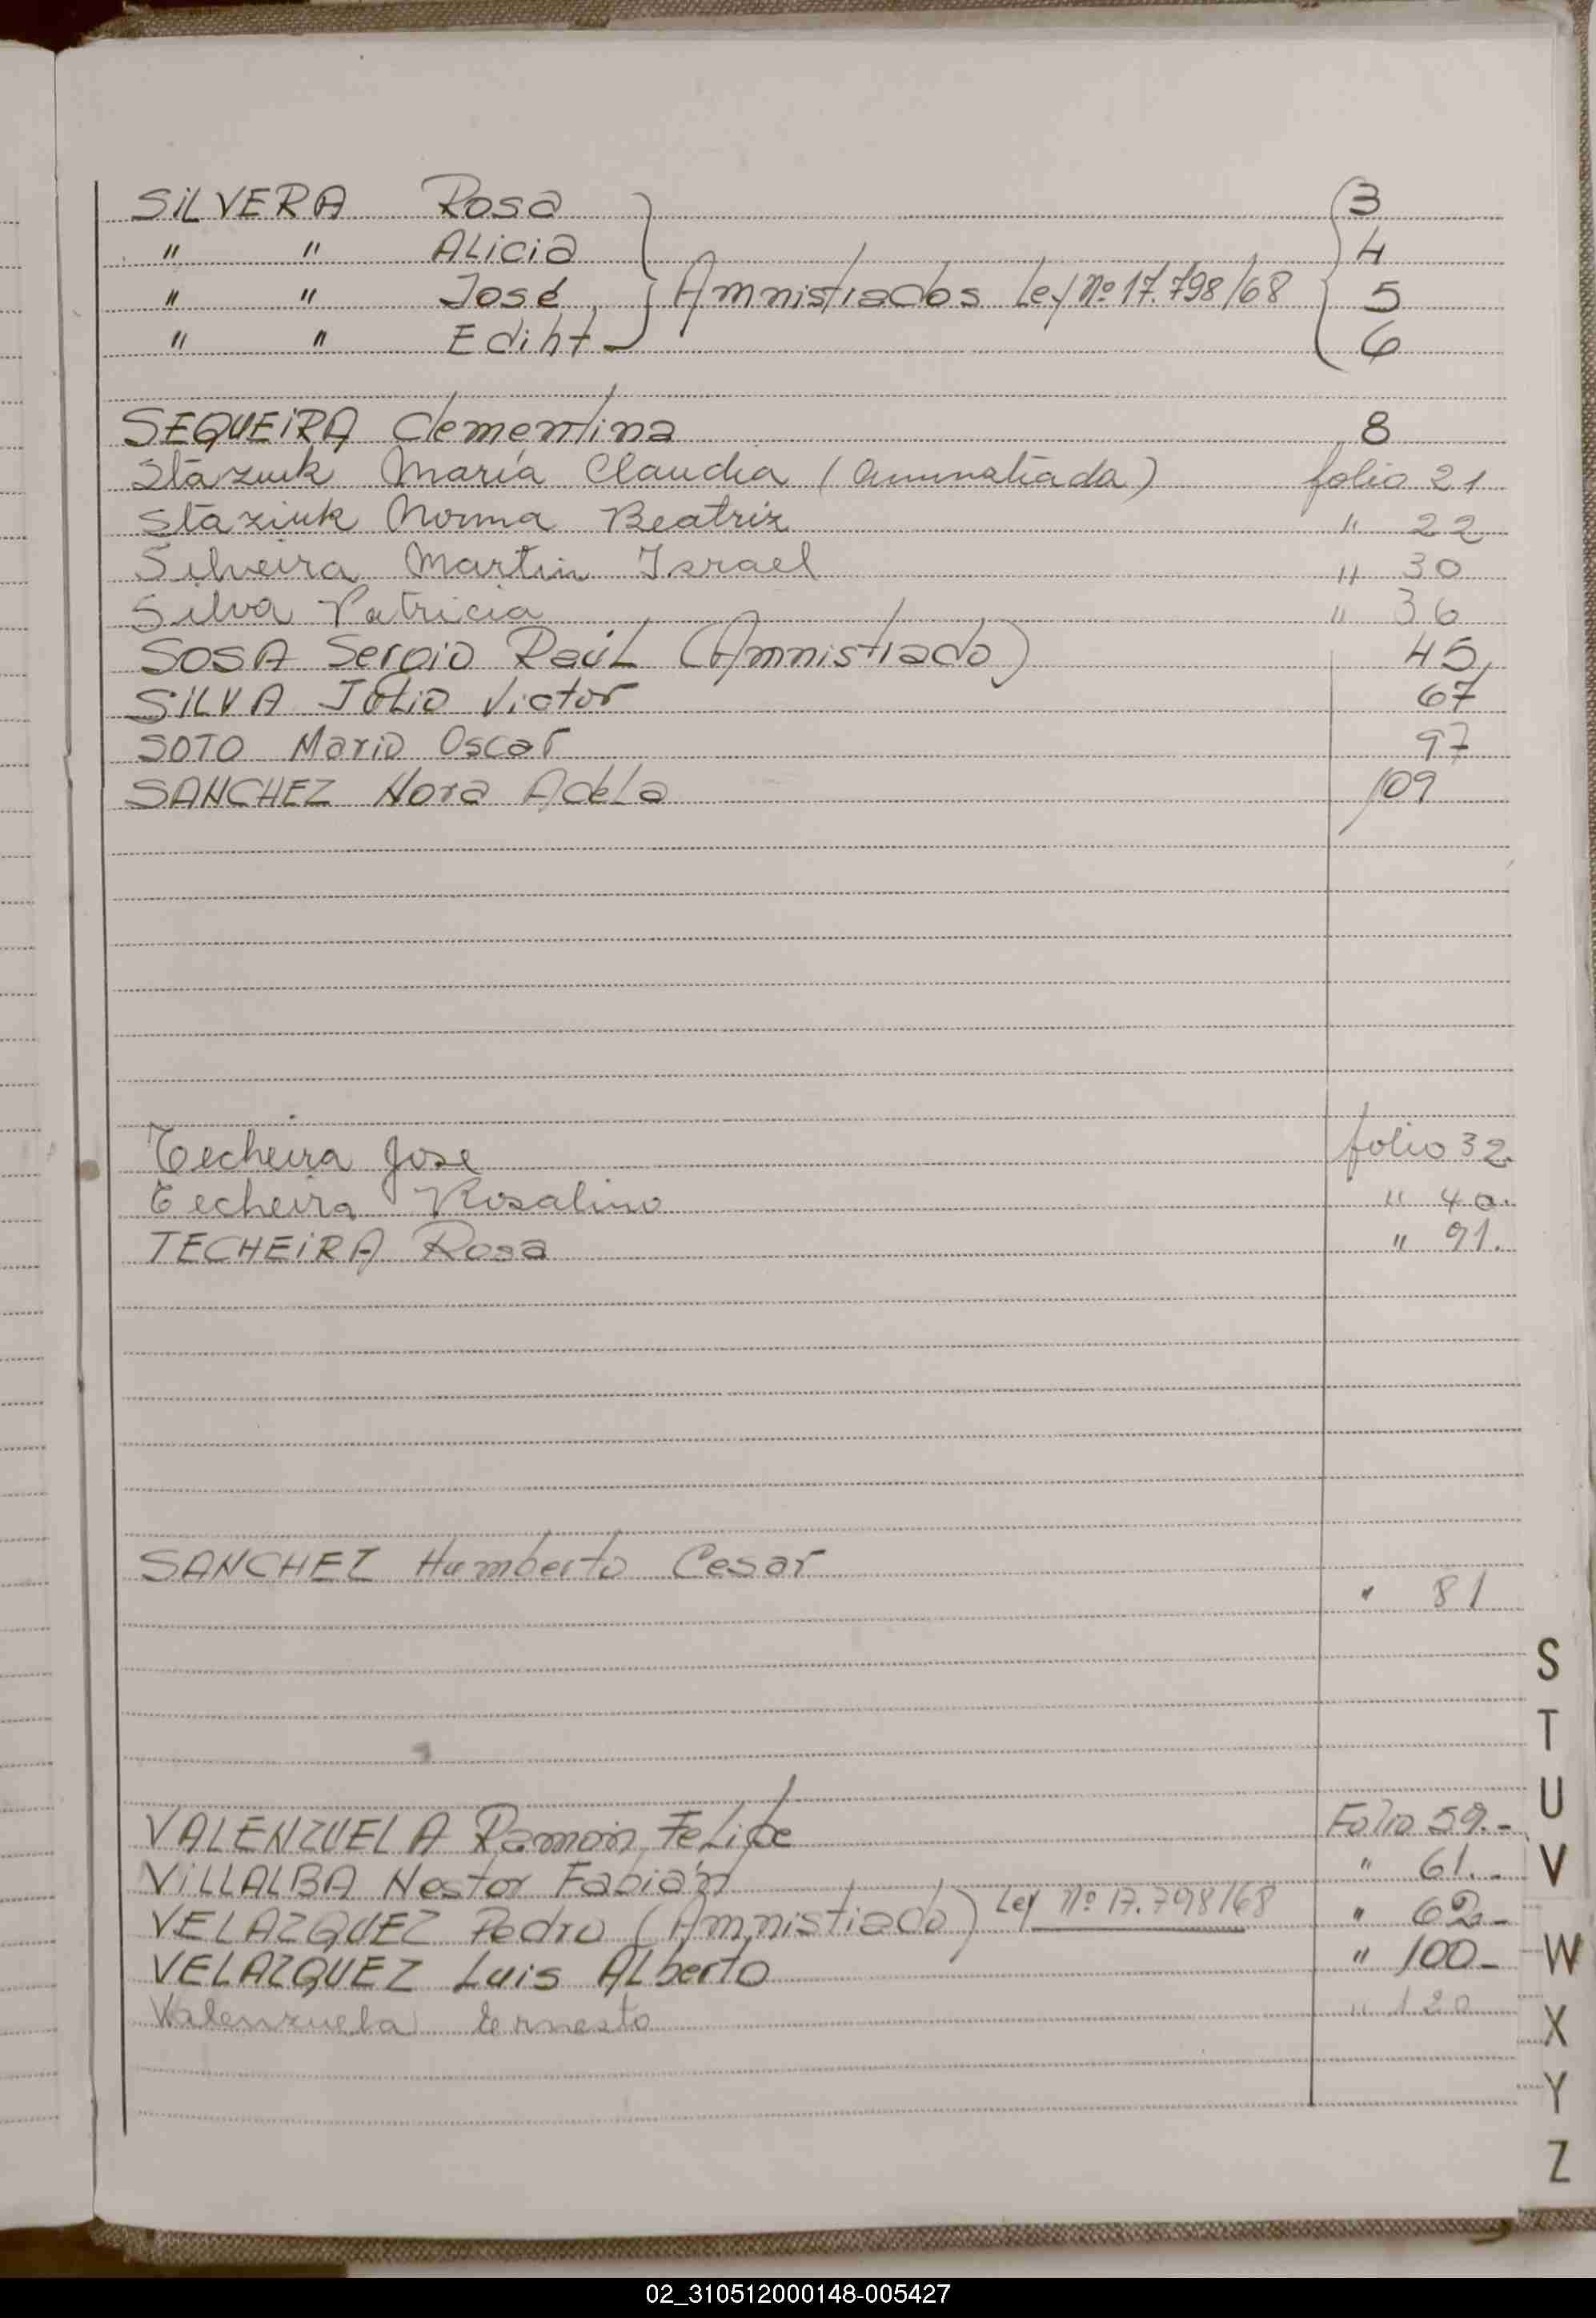 SILVERA Rosa 3
" " ALicia 4
" " José } Amnistiados Ley nº 17.798/68 5
" " Ediht 6
SEQUEIRA Clementina 8
Staziuk María Claudia (amnistiada) folio 21
Staziuk Norma Beatriz " 22
Silveira Martin Israel " 30
Silva Patricia " 36
SOSA Sergio RaúL (Amnistiado) 45
SILVA Julio Victor 67
SOTO Mario Oscar 97
SANCHEZ Nora AdeLa 109
Techeira Jose folio 32
Techeira Rosalino " 40.
TECHEIRA Rosa " 91.
SANCHEZ Humberto Cesar
" 81
VALENZUELA Ramón FeLipe Folio 59.-
VILLALBA Nestor Fabián " 61.-
VELAZQUEZ Pedro (Amnistiado) Ley nº 17.798/68 " 62.-
VELAZQUEZ Luis ALberto " 100-
Valenzuela Ernesto " 120
S
T
U
V
W
X
Y
Z
02_310512000148-005427